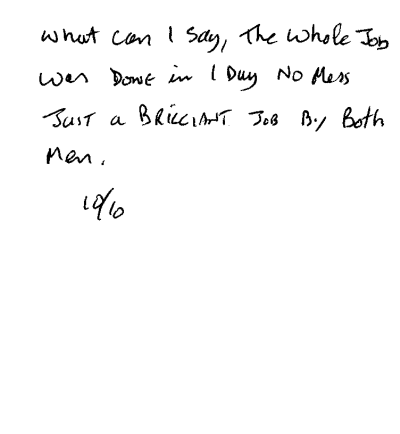 what can I say, The whole Job
was Done in 1 Day No Mess
Just a BRILLIANT JOB By Both
Men.
10/10